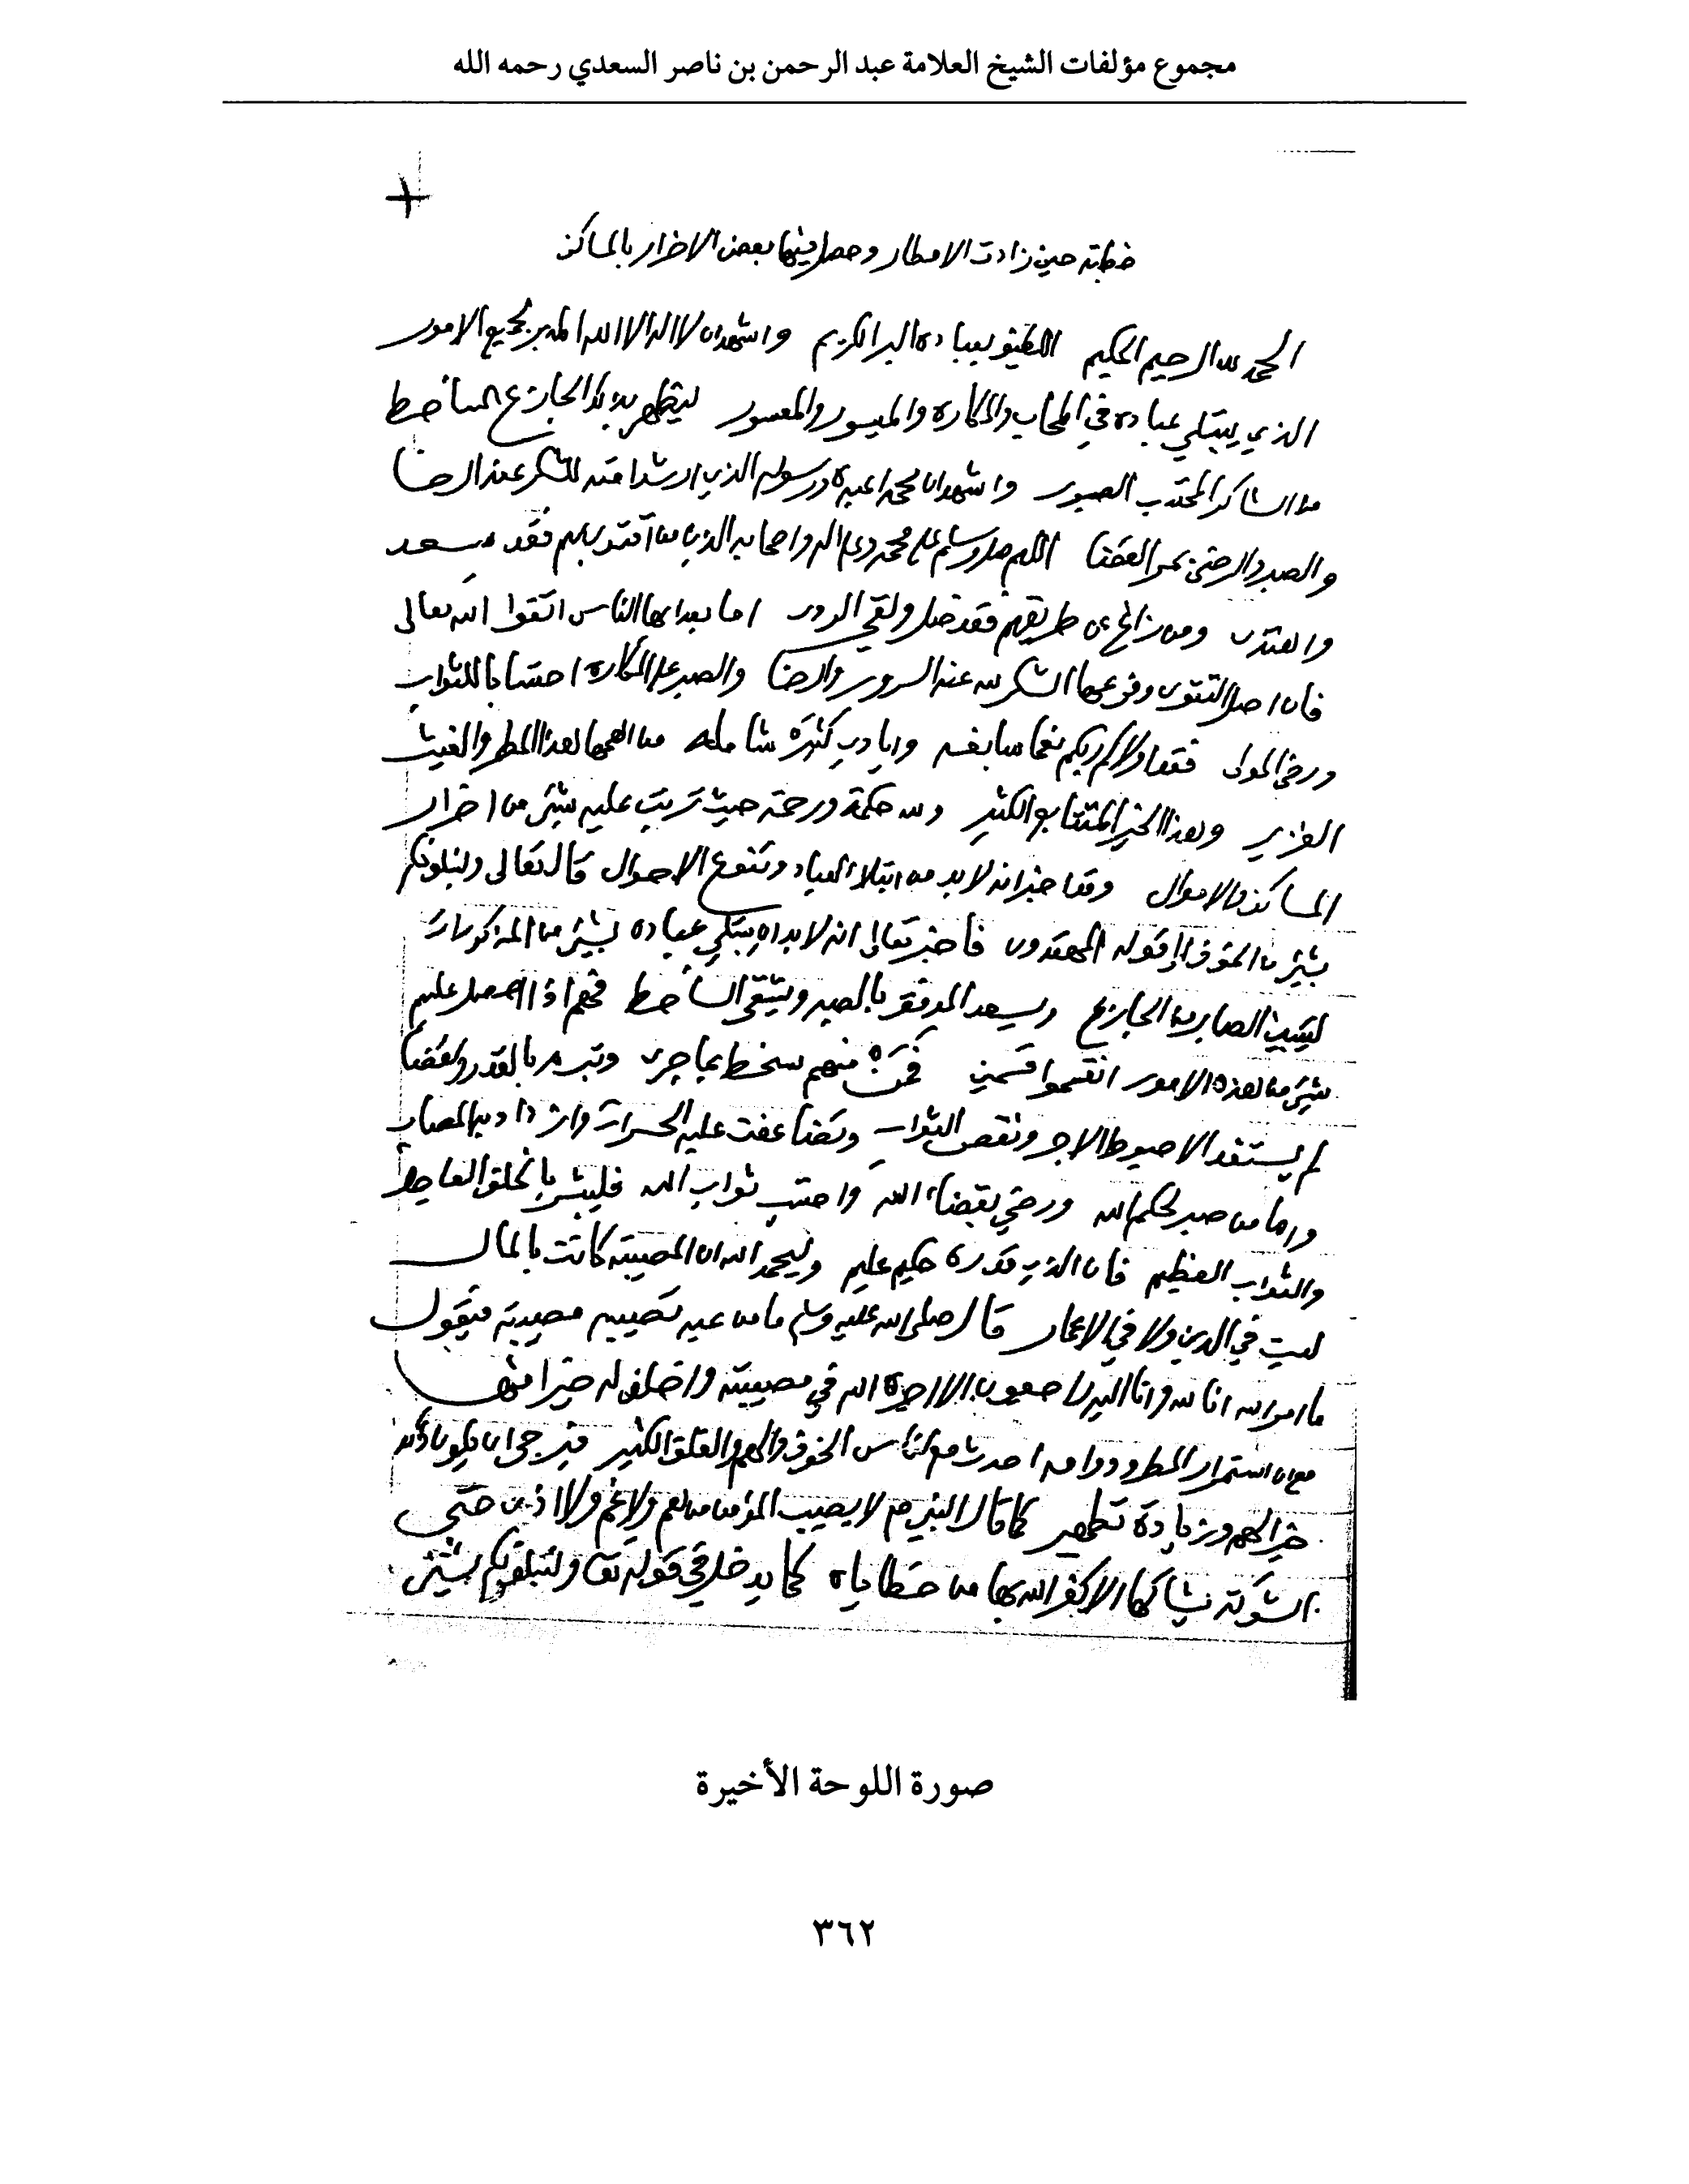 مجموع مؤلفات الشيخ العلامة عبد الرحمن بن ناصر السعدي رحمه الله
خطبة حين زادت الامطار وحصل فيها بعض الاضرار بالمساكن
الحمد لله الرحيم الحكيم اللطيف بعباده البر الكريم واشهد ان لا اله الا الله المدبر لجميع الامور
الذي يبتلي عباده في المحاب والمكاره والميسور والمعسور ليظهر بذلك الجازع الساخط
من الشاكر المحتسب الصبور واشهد ان محمدا عبده ورسوله الذي ارشد امته للشكر عند الرخا
والصبر والرضى بمر القضا اللهم صل وسلم على محمد وعلى اله واصحابه الذين من اقتدى بهم فقد سعد
واهتدى ومن زاغ عن طريقهم فقد ضل ولقي الردى اما بعد ايها الناس اتقوا الله تعالى
فان اصل التقوى وفرعها الشكر لله عند السرور والرضا والصبر على المكاره احتسابا للثواب
ورضى المولى فقد اولاكم ربكم نعما سابغه وايادي كثيرة شامله من اهمها هذا المطر والغيث
الغزير وهذا الخير المتتابع الكثير ولله حكمة ورحمة حيث ترتب عليه شيئ من اضرار
المساكن والاموال وقد اخبر انه لا بد من ابتلاء العباد وتنوع الاحوال قال تعالى ولنبلونكم
بشيئ من الخوف الى قوله المهتدون فاخبر تعالى انه لا بد ان يبتلي عباده بشيئ من المذكورات
ليتبين الصابر من الجازع ويسعد الموفق بالصبر ويشقى الساخط فهم اذا حصل عليهم
شيئ من هذه الامور انقسموا قسمين فمن منهم سخط بما جرى وتبرم بالقدر والقضا
لم يستفد الا حبوط الاجر ونقص الثواب وتضاعفت عليه الحسرات وازداد به المصاب
واما من صبر لحكم الله ورضي بقضاء الله واحتسب ثواب الله فليبشر بالخلف العاجل
والثواب العظيم فان الذي قدره حكيم عليم وليحمد الله ان المصيبة كانت بالمال
ليست في الدين ولا في الاعمار قال صلى الله عليه وسلم ما من عبد تصيبه مصيبة فيقول
ما امر الله انا لله وانا اليه راجعون الا اجره الله في مصيبته واخلف له خيرا منها
مع ان استمرار المطر ودوامه احدث مع الناس الخوف والهم والقلق الكثير فيرجى ان يكون ذلك
خيرا لهم وزيادة تطهير كما قال النبي ص لا يصيب المؤمن من هم ولا غم ولا اذى حتى
الشوكة يشاكها الا كفر الله بها من خطاياه كما يدخل في قوله تعا ولنبلونكم بشيئ
صورة اللوحة الأخيرة
٣٦٢